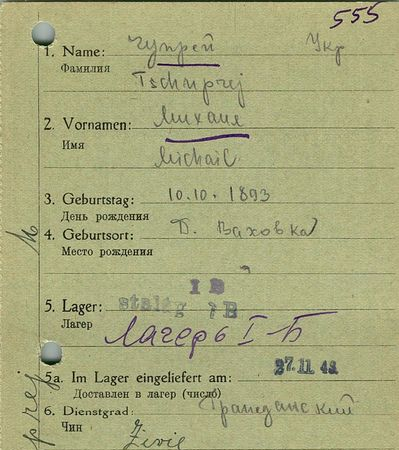 555
1. Name: Чупрей Укр
Фамилия
Tschuprej
2. Vornamen: Михаил
Имя
Michail
3. Geburtstag: 10.10.1893
День рождения
4. Geburtsort: Д. Ваховка
Место рождения
I B
5. Lager: stalag I B
Лагер
Лагерь I-Б
5a. Im Lager eingeliefert am: 27.11.43
Доставлен в лагер (число)
6. Dienstgrad: Гражданский
Чин
Zivil
prej M